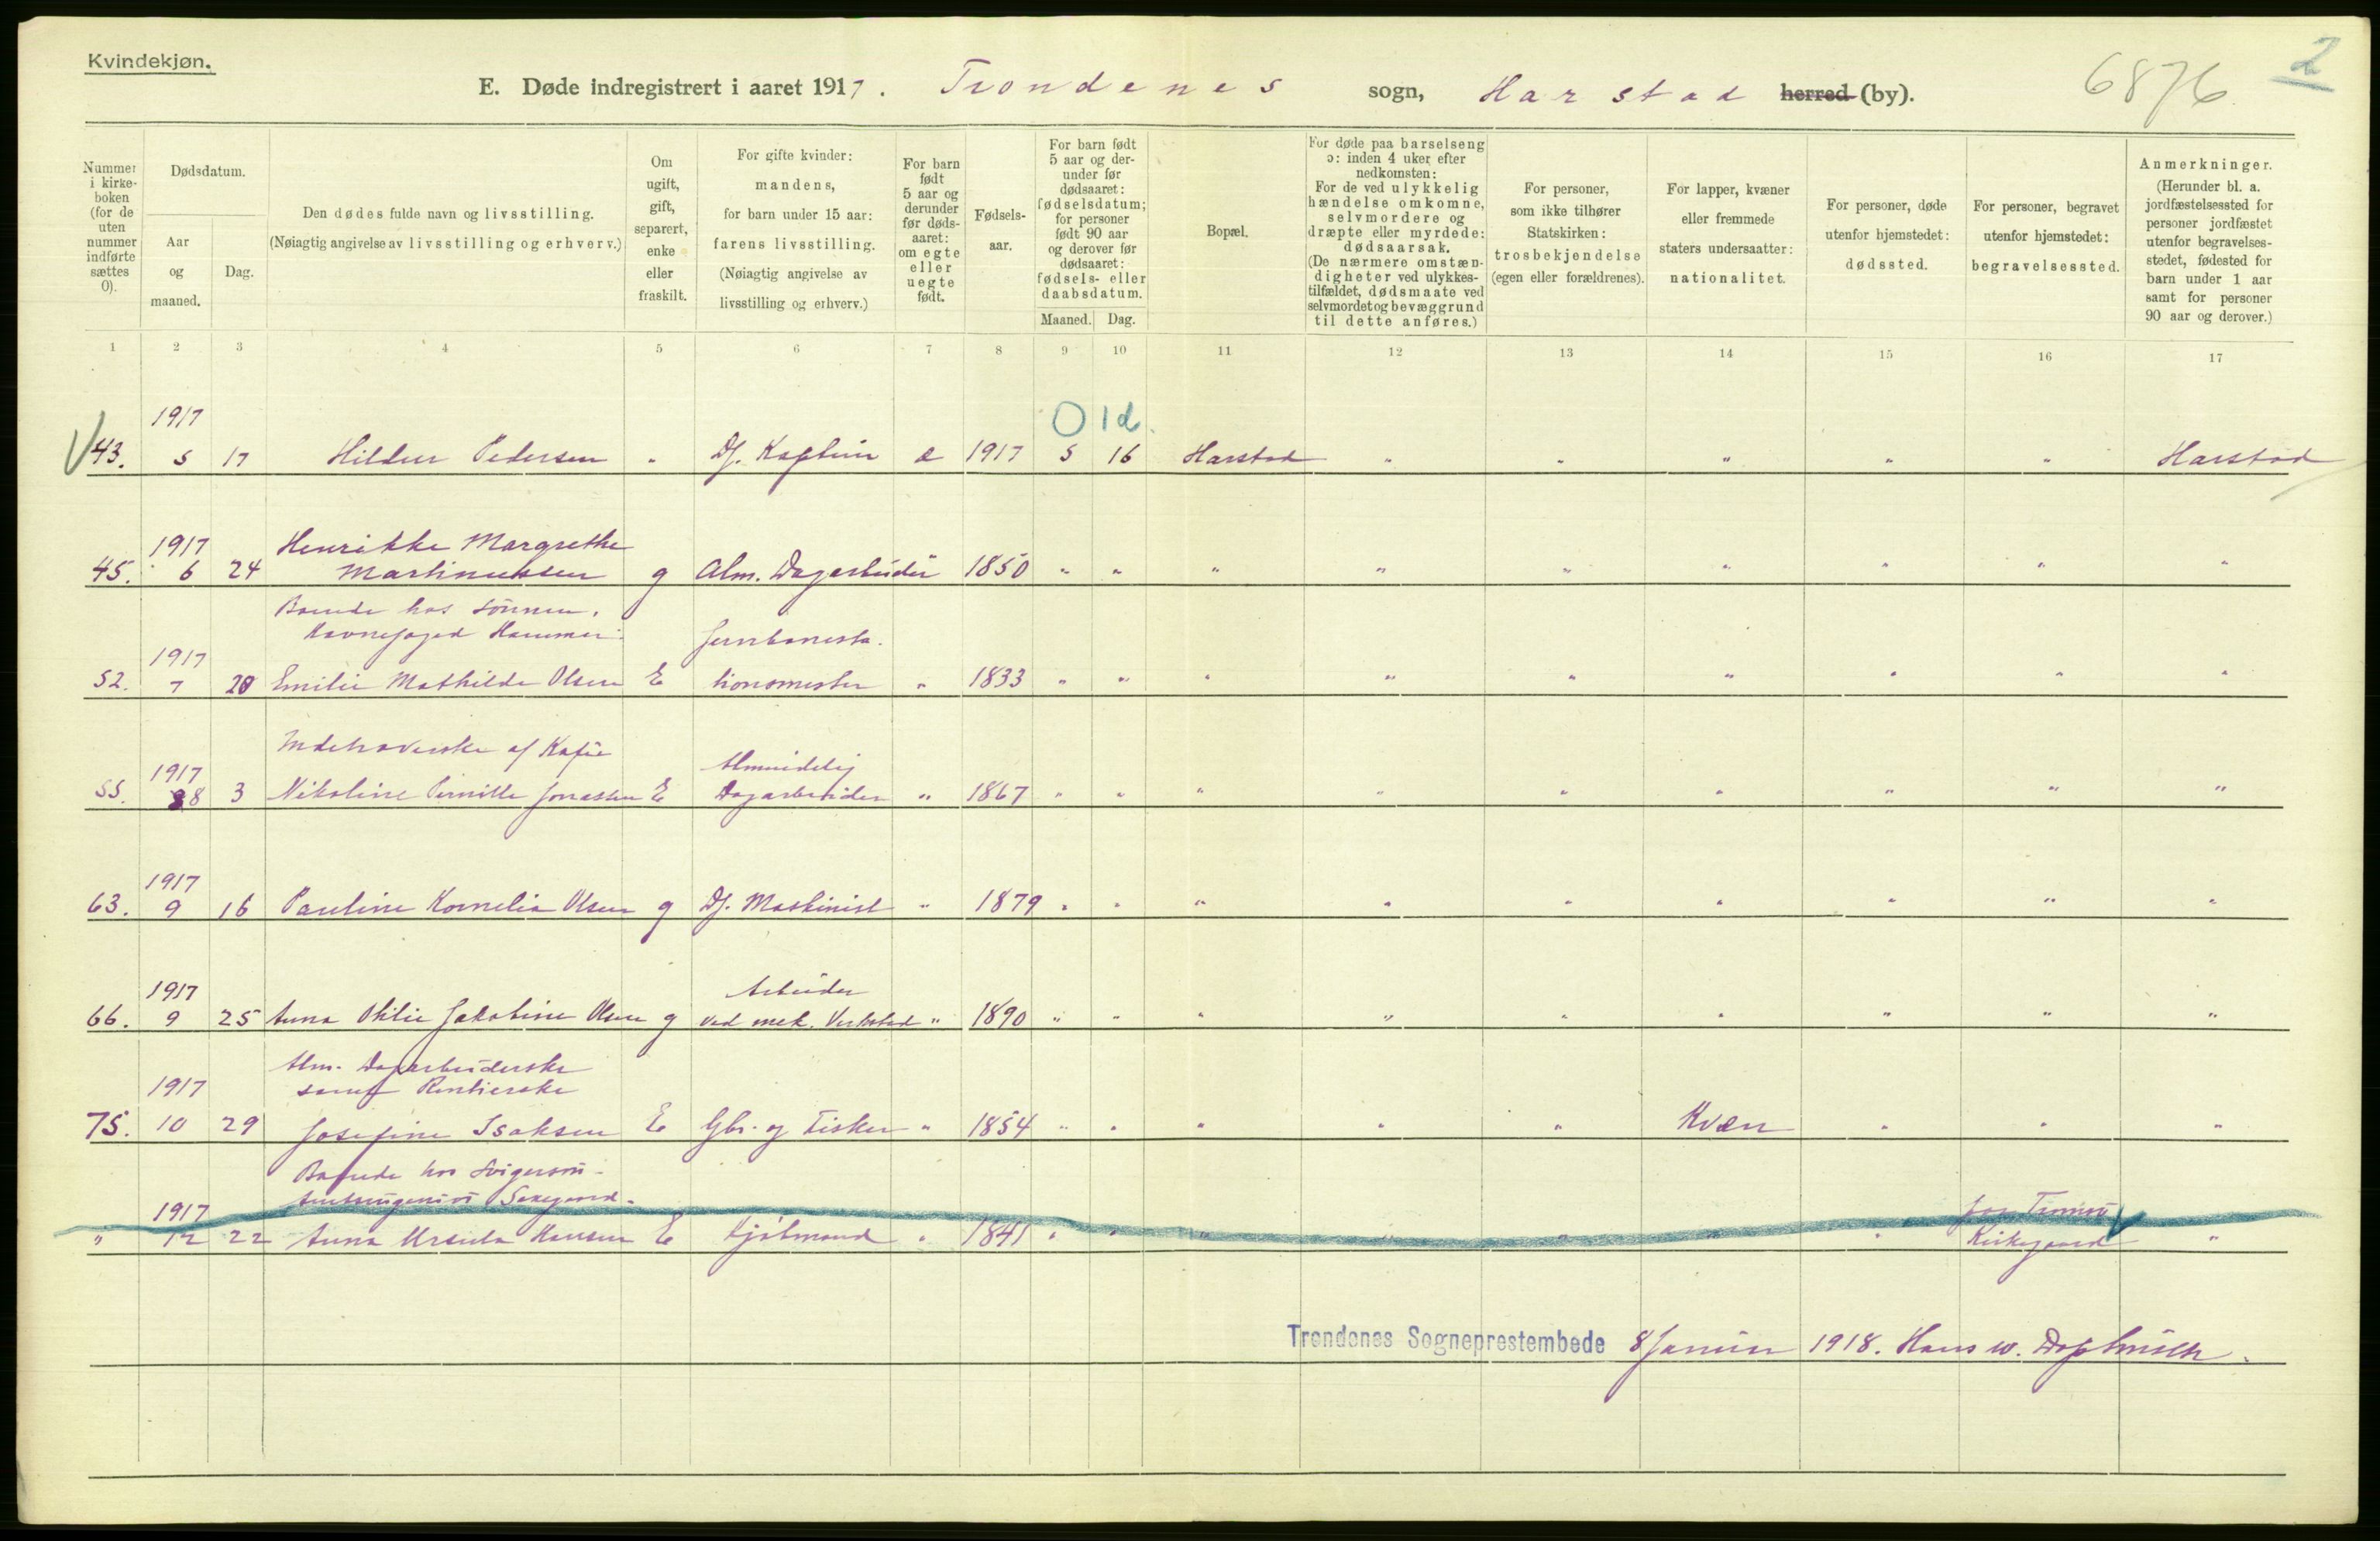 Kvindekjøn.
E. Døde indregistrert i aaret 1917. Trondenes sogn, Harstad herred (by).
6876
2
Nummer i kirkeboken (for de uten nummer indførte sættes 0).
Dødsdatum.
Aar og maaned.
Dag.
Den dødes fulde navn og livsstilling.
(Nøiagtig angivelse av livsstilling og erhverv.)
Om ugift, gift, separert, enke eller fraskilt.
For gifte kvinder: mandens, for barn under 15 aar: farens livsstilling.
(Nøiagtig angivelse av livsstilling og erhverv.)
For barn født 5 aar og derunder før dødsaaret: om egte eller uegte født.
Fødselsaar.
For barn født 5 aar og derunder før dødsaaret: fødselsdatum; for personer født 90 aar og derover før dødsaaret: fødsels- eller daabsdatum.
Maaned. Dag.
Bopæl.
For døde paa barselseng ɔ: inden 4 uker efter nedkomsten:
For de ved ulykkelig hændelse omkomne, selvmordere og dræpte eller myrdede: dødsaarsak.
(De nærmere omstændigheter ved ulykkestilfældet, dødsmaate ved selvmordet og bevæggrund til dette anføres.)
For personer, som ikke tilhører Statskirken: trosbekjendelse (egen eller forældrenes).
For lapper, kvæner eller fremmede staters undersaatter: nationalitet.
For personer, døde utenfor hjemstedet: dødssted.
For personer, begravet utenfor hjemstedet: begravelsessted.
Anmerkninger.
(Herunder bl. a. jordfæstelsessted for personer jordfæstet utenfor begravelsesstedet, fødested for barn under 1 aar samt for personer 90 aar og derover.)
1 2 3 4 5 6 7 8 9 10 11 12 13 14 15 16 17
1917 0 1 d.
43. 5 17 Hildur Pedersen " Df. Kaptein e 1917 5 16 Harstad " " " " " Harstad
1917 Henrikke Margrethe
45. 6 24 Martinussen g Alm. Dagarbeider 1850 " " " " " " " " "
Boende hos sønnen,
Havnefoged Hammer: Jernbanesta-
1917
52. 7 28 Emilie Mathilde Olsen E tionsmester " 1833 " " " " " " " " "
Indehaverske af Kafé Almindelig
1917
55. 8 3 Nikoline Pernille Jonassen E Dagarbeider " 1867 " " " " " " " " "
1917
63. 9 16 Pauline Kornelia Olsen g Df. Maskinist " 1879 " " " " " " " " "
1917 Arbeider
66. 9 25 Anna Otilie Jakobine Olsen g ved mek. Verksted " 1890 " " " " " " " " "
Alm. Dagarbeiderske
1917 samt Rentierske
75. 10 29 Josefine Isaksen E Gbr. og Fisker " 1854 " " " " " Kvæn " " "
Boende hos Svigersøn
1917 Tromsø
" 12 22 Anna Ursula Hansen E Kjøbmand " 1841 " " " " " " " Kirkegaard "
Trondenes Sogneprestembede 8 Januar 1918. Hans W.